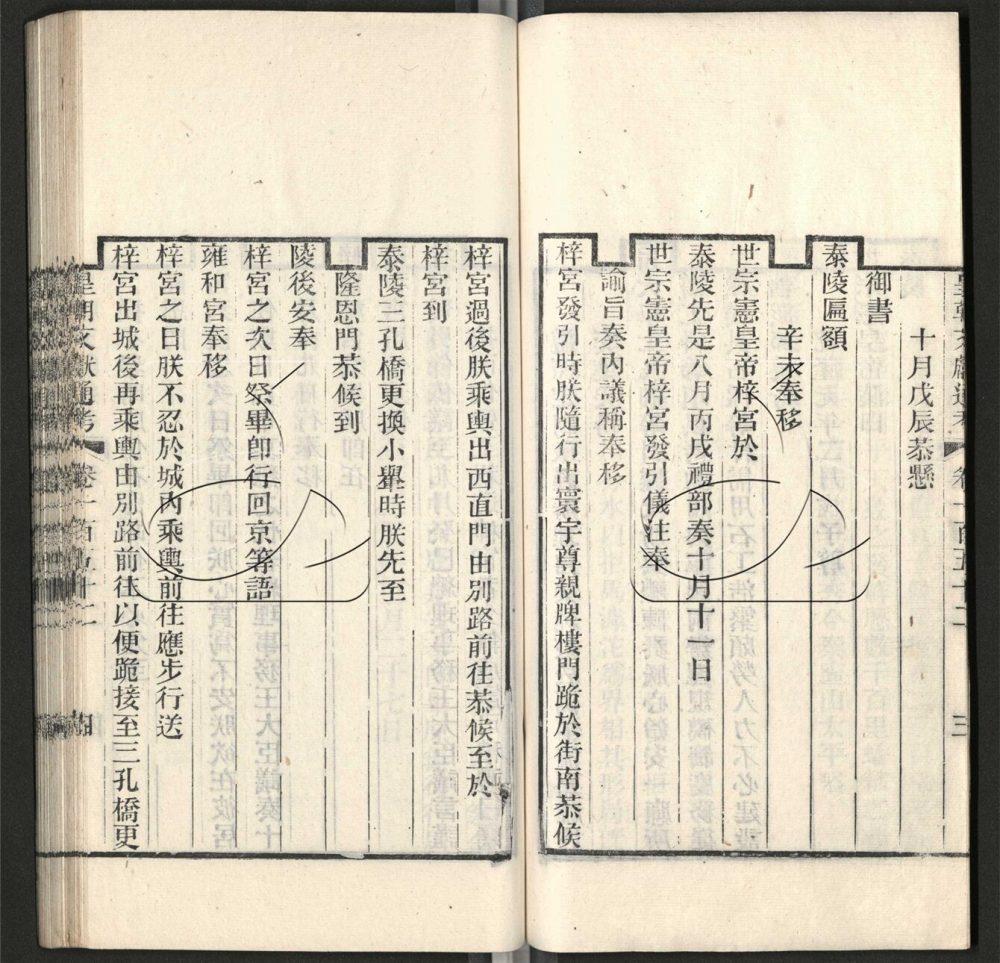 皇朝文獻通考 卷一百五十二 三
十月戊辰恭懸
御書
泰陵匾額
辛未奉移
世宗憲皇帝梓宮於
泰陵先是八月丙戌禮部奏十月十一日
世宗憲皇帝梓宮發引儀注奉
諭旨奏內議稱奉移
梓宮發引時朕隨行出寰宇尊親牌樓門跪於街南恭候
梓宮過後朕乘輿出西直門由別路前往恭候至於
梓宮到
泰陵三孔橋更換小轝時朕先至
隆恩門恭候到
陵後安奉
梓宮之次日祭畢卽行回京等語
雍和宮奉移
梓宮之日朕不忍於城內乘輿前往應步行送
梓宮出城後再乘輿由別路前往以便跪接至三孔橋更
皇朝文獻通考 卷一百五十二 四